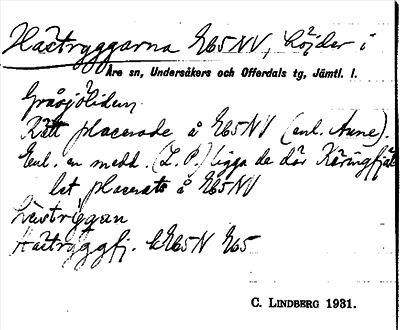 Hästryggarna E65NV, höjder i
Åre sn, Undersåkers och Offerdals tg, Jämtl. l.
Gråsjöliden.
Rätt placerade å E65NV (enl. Anne).
Enl. en medd. (L. P.) ligga de där Käringfjäl-
let placerats å E65NV
Lästriggan
Hästryggfj. E65N E65
C. LINDBERG 1931.